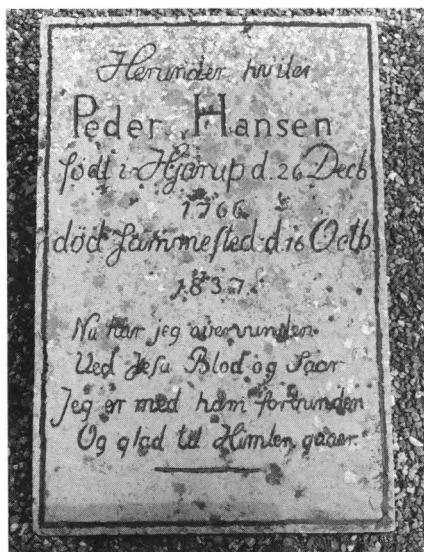 Herunder hviler
Peder Hansen
født i Hjarup d. 26 Decb
1766.
död Sammested d. 16 Octb
1837.
Nu har jeg overvunden
Ved Jesu Blod og Saar
Jeg er med ham forbunden
Og glad til Himlen gaaer.